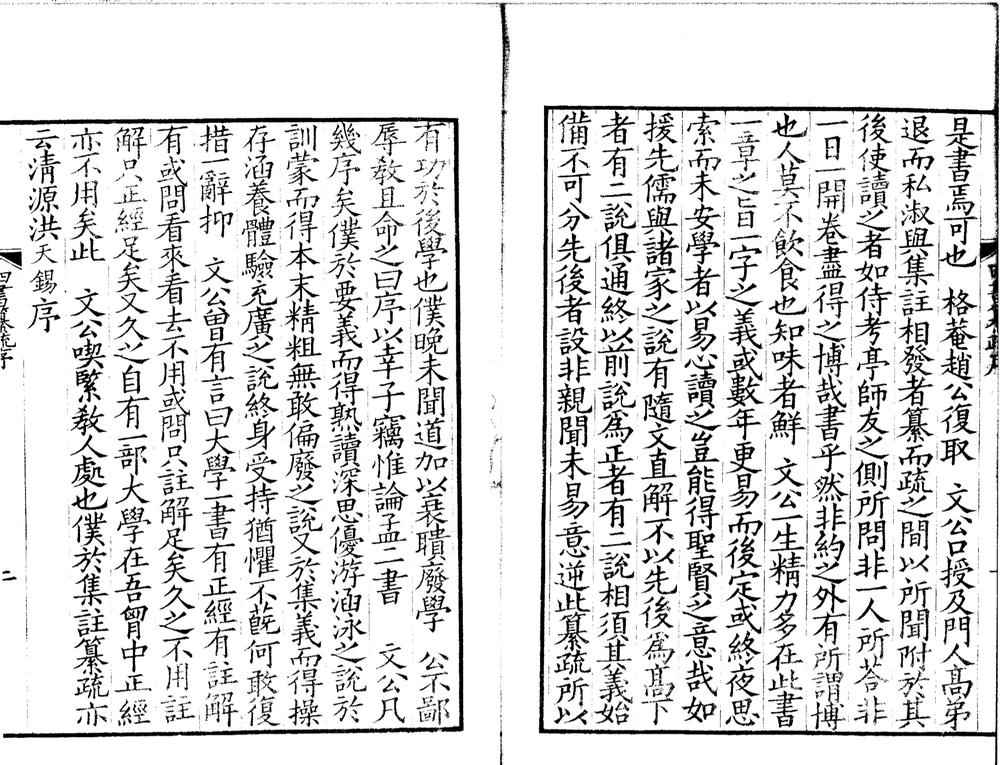 是書焉可也　格菴趙公復取　文公口授及門人高弟
退而私淑與集註相發者纂而疏之間以所聞附於其
後使讀之者如侍考亭師友之側所問非一人所荅非
一日一開卷盡得之博哉書乎然非約之外有所謂博
也人莫不飲食也知味者鮮　文公一生精力多在此書
一章之旨一字之義或數年更易而後定或終夜思
索而未安學者以易心讀之豈能得聖賢之意哉如
援先儒與諸家之說有隨文直解不以先後爲髙下
者有二說俱通終以前說爲正者有二說相須其義始
備不可分先後者設非親聞未易意逆此纂疏所以
有功於後學也僕晚未聞道加以衰聵廢學　公不鄙
辱教且命之曰序以幸子竊惟論孟二書　文公凡
幾序矣僕於要義而得熟讀深思優游涵泳之說於
訓蒙而得本末精粗無敢偏廢之說又於集義而得操
存涵養體驗充廣之說終身受持猶懼不蔇何敢復
措一辭抑　文公曾有言曰大學一書有正經有註解
有或問看來看去不用或問只註解足矣久之不用註
解只正經足矣又久之自有一部大學在吾胷中正經
亦不用矣此　文公喫緊教人處也僕於集註纂疏亦
云淸源洪天錫序
四書纂疏序
二